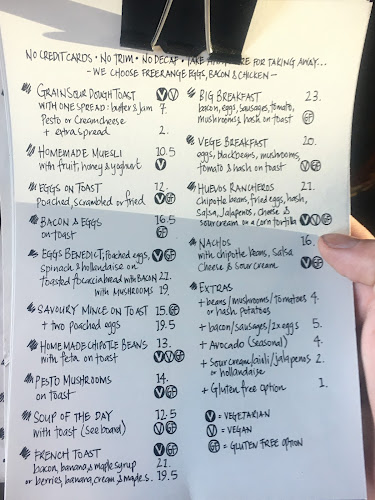 NO CREDIT CARDS • NO TRIM • NO DECAF • TAKE AWAYS ARE FOR TAKING AWAY...
- WE CHOOSE FREERANGE EGGS, BACON & CHICKEN -
GRAIN SOUR DOUGH TOAST V V
WITH ONE SPREAD: butter & Jam 7.
Pesto or Creamcheese
+ extra spread 2.
HOMEMADE MUESLI 10.5
with fruit, honey & yoghurt V
EGGS ON TOAST 12.
Poached, scrambled or fried V GF
BACON & EGGS 16.5
on toast GF
EGGS BENEDICT, Poached eggs, V GF
spinach & hollandaise on
toasted focaccia bread WITH BACON 22.
WITH MUSHROOMS 19.
SAVOURY MINCE ON TOAST 15. GF
+ two poached eggs 19.5
HOMEMADE CHIPOTLE BEANS 13.
with feta on toast V V GF
PESTO MUSHROOMS 14.
on toast V GF
SOUP OF THE DAY 12.5
with toast (see board) V GF
FRENCH TOAST V GF
bacon, banana, & maple syrup 21.
or berries, banana, cream & maple s. 19.5
BIG BREAKFAST 23.
bacon, eggs, sausages, tomato,
mushrooms & hash on toast GF
VEGE BREAKFAST 20.
eggs, blackbeans, mushrooms,
tomato & hash on toast V GF
HUEVOS RANCHEROS 21.
chipotle beans, fried eggs, hash,
salsa, Jalapenos, cheese &
sourcream on a corn tortilla V V GF
NACHOS 16.
with chipotle beans, salsa V
cheese & sour cream GF
EXTRAS
+ beans/mushrooms/tomatoes 4.
or hash potatoes
+ bacon/sausages/2x eggs 5.
+ Avocado (seasonal) 4.
+ sour cream/aioli/jalapenos 2.
or hollandaise
+ Gluten free option 1.
V = VEGETARIAN
V = VEGAN
GF = GLUTEN FREE OPTION